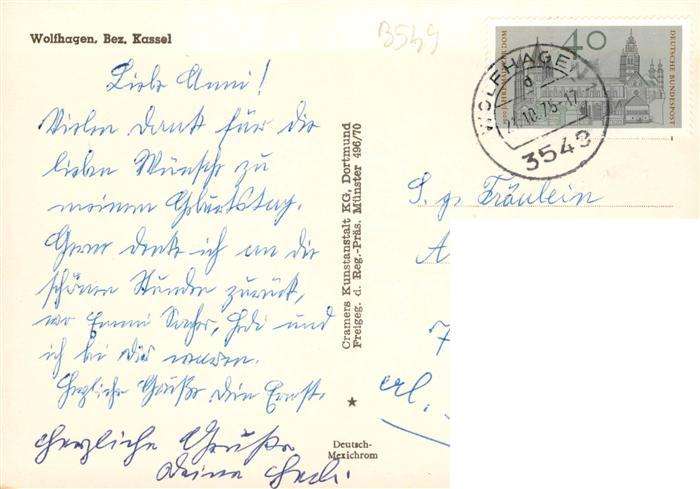 B549
Wolfhagen, Bez. Kassel
40
DEUTSCHE BUNDESPOST
WOLFHAGEN
d
10.75-17
3549
Liebe Anni!
Vielen Dank für die
lieben Wünsche zu
meinem Geburtstag.
Gerne denke ich an die
schönen Stunden zurück,
wo Emmi Hedi und
ich bei Dir waren.
Herzliche Grüße Dein Ernst.
Herzliche Grüße
Deine Hedi.
Cramers Kunstanstalt KG, Dortmund
Freigeg. d. Reg.-Präs. Münster 496/70
Deutsch-
Mexichrom
S. g. Fräulein
A
7